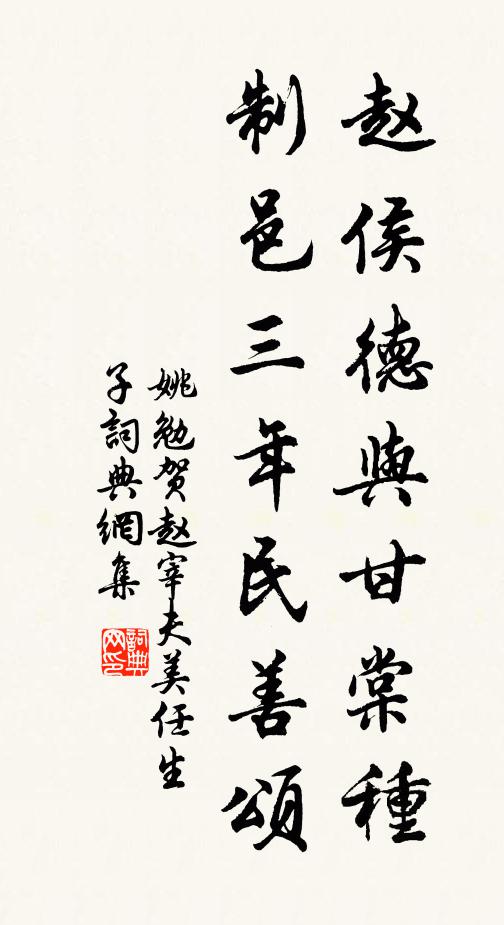 赵侯德與甘棠種
制邑三年民善頌
姚勉贺赵宰夫美任生
子詞典網集
詞典网印